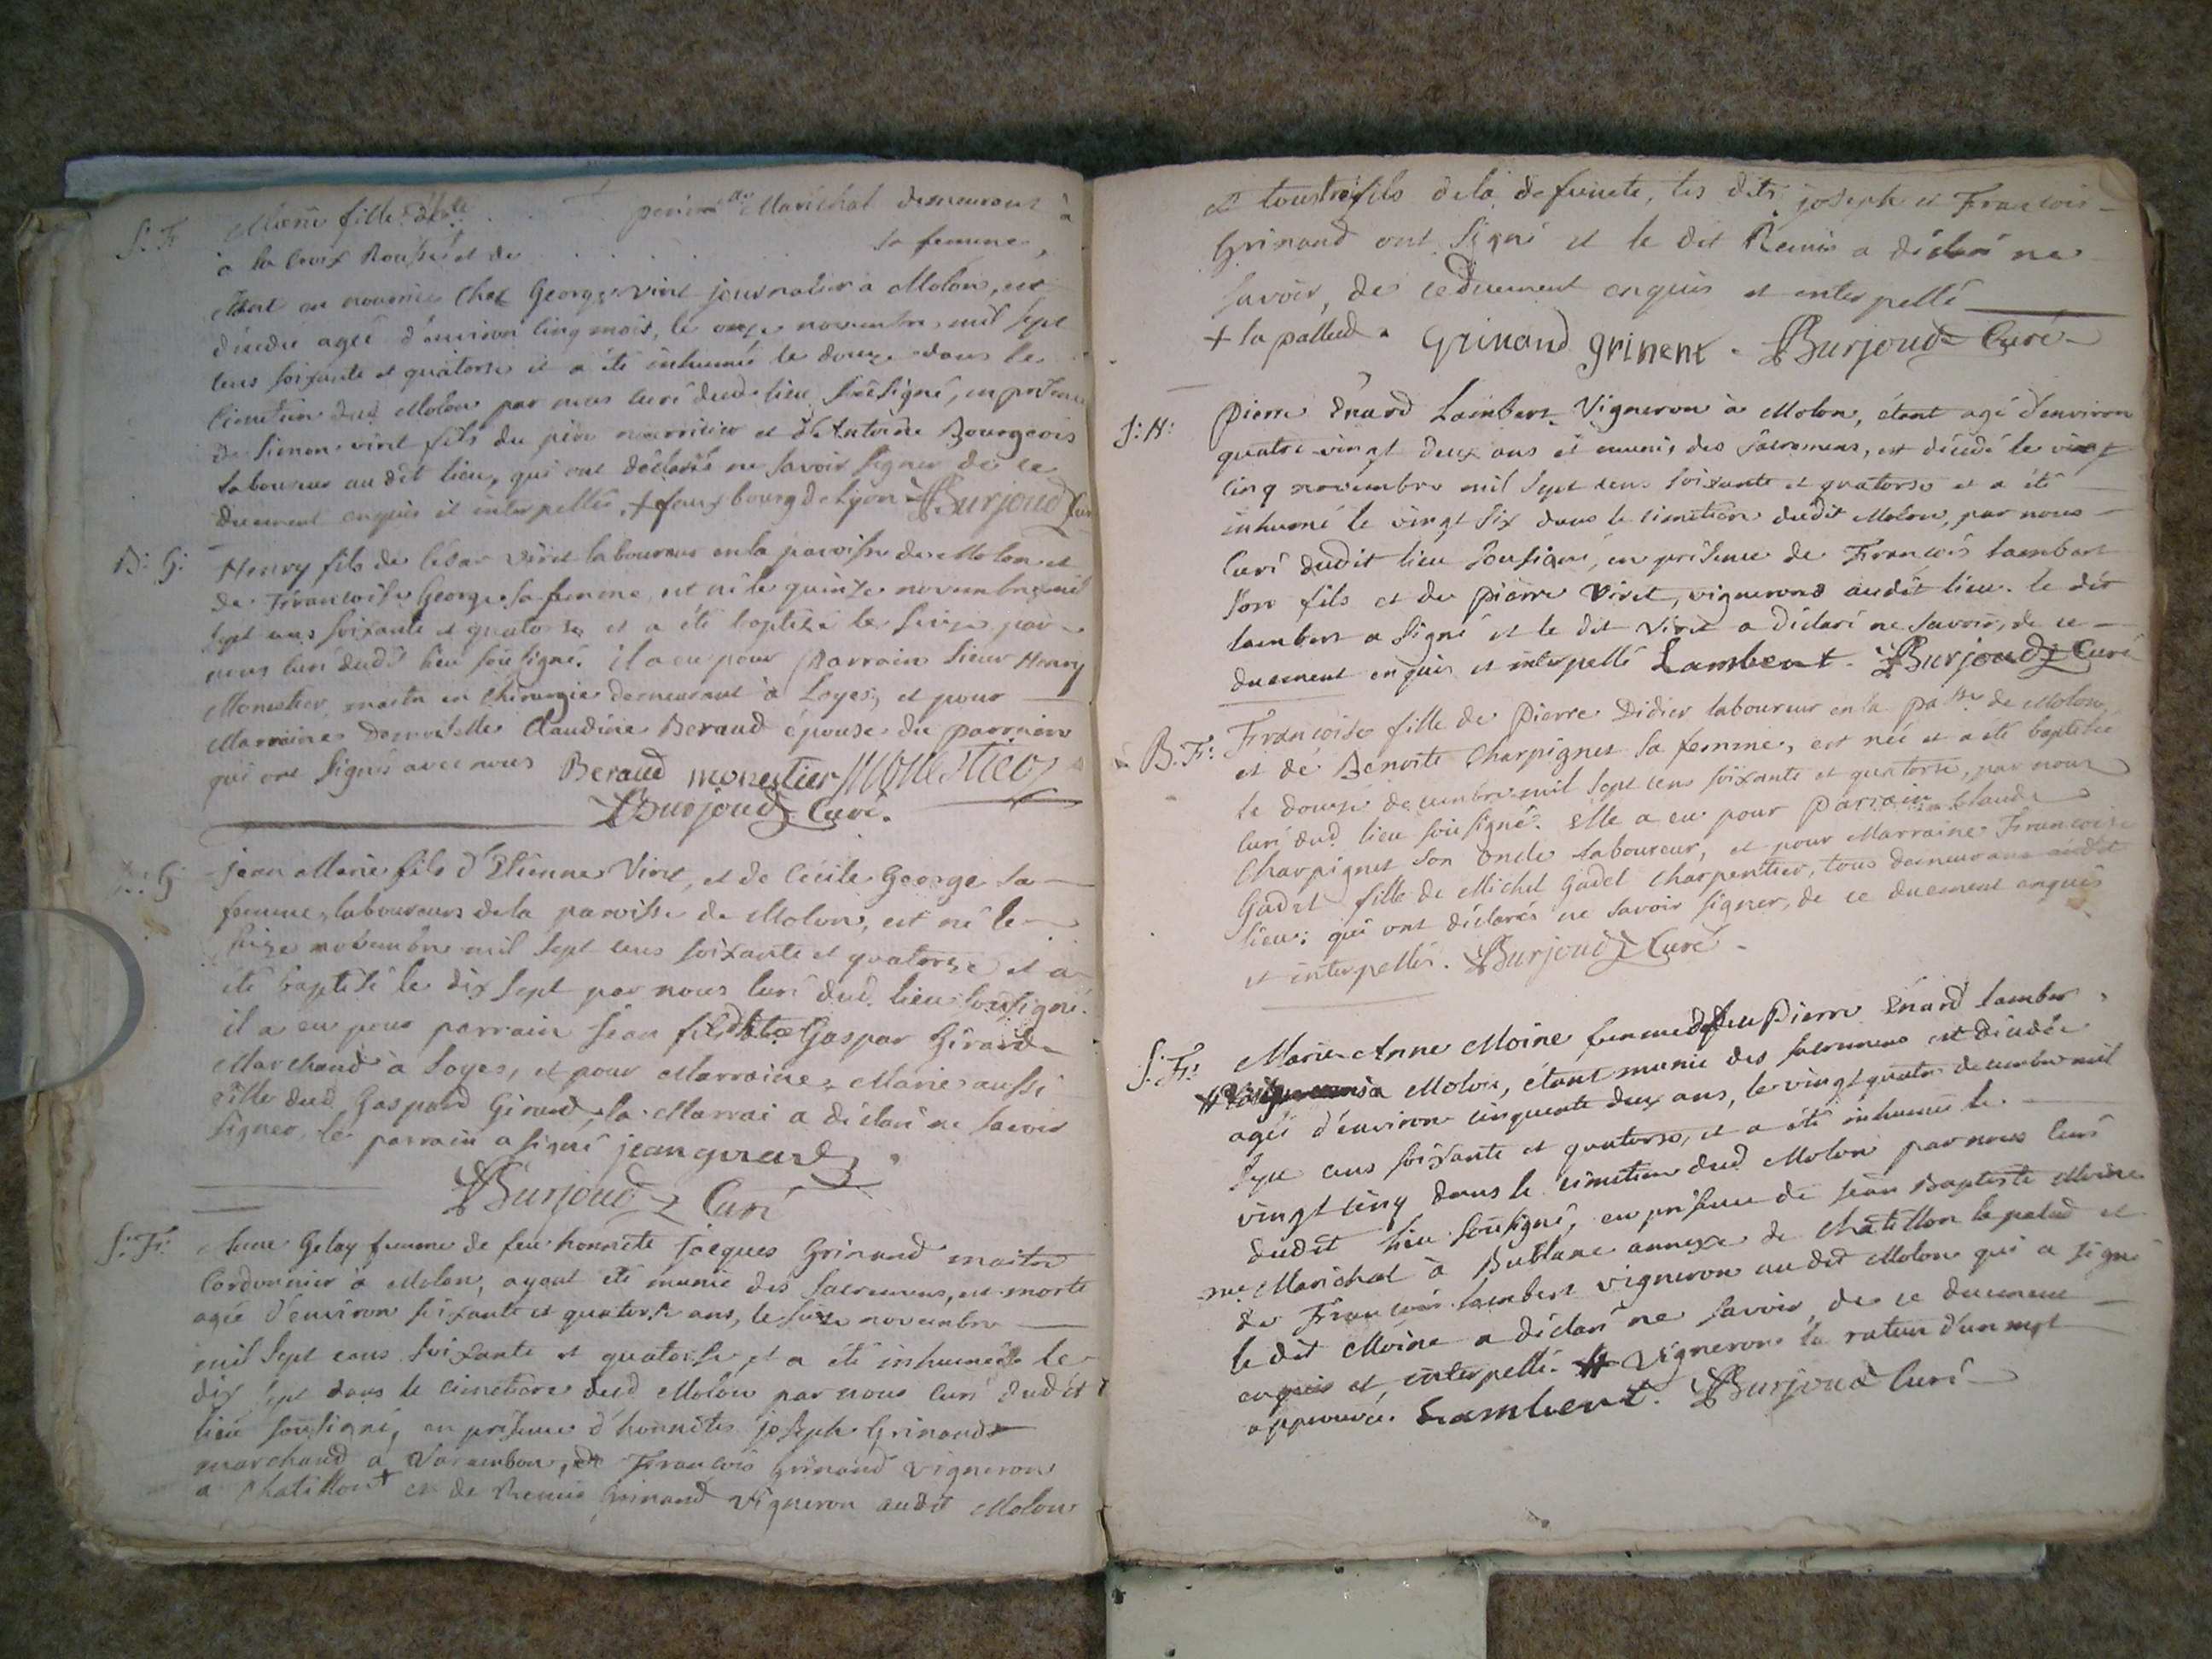 S: F
fille
Maréchal demeurant à
à la Croix Rousse et de . . . . . . sa femme,
étant en nourrice chez George Viret journalier à Molon, est
décédée agée d'environ cinq mois, le onze novembre mil sept
cens soixante et quatorse et a été inhumée le douze dans le
cimetiere dud Molon par nous curé dud lieu soussigné, en présence
de Simon Viret fils du père nourricier et d'Antoine Bourgeois
laboureur au dit lieu, qui ont déclarés ne savoir signer de ce
duement enquis et interpellés, + fauxbourg de Lyon Burjoud Curé
B: G: Henry fils de César Viret laboureur en la paroisse de Molon et
de Françoise George sa femme, est né le quinze novembre mil
sept cens soixante et quatorse et a été baptisé le seize par
nous curé dudit lieu soussigné. il a eu pour Parrain sieur Henry
Monestier, maitre en chirurgie demeurant à Loyes, et pour
Marraine Demoiselle Claudine Beraud épouse du parrain
qui ont signés avec nous Beraud monestier Monestier
Burjoud Curé.
B: G Jean Marie fils d'Etienne Viret, et de Cécile George sa
femme, laboureurs de la paroisse de Molon, est né le
seize novembre mil sept cens soixante et quatorse et a
été baptisé le dix sept par nous curé dud. lieu soussigné.
il a eu pour parrain Jean fils de Gaspar Girard
Marchand à Loyes, et pour Marraine, Marie aussi
fille dud Gaspard Girard, la Marrai a déclaré ne savoir
signer, le parrain a signé jean girard
Burjoud Curé
S: F: Anne Gelay femme de feu honnete Jacques Grinand maitre
Cordonnier à Molon, ayant été munie des sacremens, est morte
agée d'environ soixante et quatorse ans, le seize novembre
mil sept cens soixante et quatorse, et a été inhumée le
dix sept dans le cimetiere dud Molon par nous curé dudit
lieu soussigné, en présence d'honnêtes Joseph Grinand
marchand à Varambon, de François Grinand vigneron
à Chatillon + et de Remis Grinand vigneron audit Molon
et tous trois fils de la defuncte, les dits joseph et François
Grinand ont signé et le dit Remis a déclaré ne
savoir, de ce duement enquis et interpellé
+ la pallud. Grinand grinent. Burjoud Curé
S: H: Pierre Enard Lambert Vigneron à Molon, étant agé d'environ
quatre-vingt deux ans et munis des sacremens, est décédé le vingt
cinq novembre mil sept cens soixante et quatorse et a été
inhumé le vingt six dans le cimetiere dudit Molon, par nous
Curé dudit lieu soussigné, en présence de François Lambert
son fils et de Pierre Viret, vignerons audit lieu. le dit
Lambert a signé et le dit Viret a déclaré ne savoir, de ce
duement enquis et interpellé Lambert. Burjoud Curé
B. F: Françoise fille de Pierre Didier laboureur en la pa^sse de Molon,
et de Benoite Charpignet sa femme, est née et a été baptisée
le douze decembre mil sept cens soixante et quatorse, par nous
Curé dud. lieu soussigné. Elle a eu pour Parrain Claude
Charpignet son oncle laboureur, et pour Marraine Françoise
Gadet fille de Michel Gadet charpentier, tous demeurans audit
lieu; qui ont déclarés ne savoir signer, de ce duement enquis
et interpellés. Burjoud Curé
S: F: Marie Anne Moine femme de feu Pierre Enard Lambert
# à Molon, étant munie des sacremens est décédée
agée d'environ cinquante deux ans, le vingt quatre decembre mil
sept cens soixante et quatorse, et a été inhumée le
vingt cinq dans le cimetiere dud Molon par nous curé
dudit lieu soussigné, en présence de Jean Baptiste Moine
me Maréchal à Bublane annexe de Chatillon la palud et
de François Lambert vigneron au dit Molon qui a signé
le dit Moine a déclaré ne savoir, de ce duement
enquis et interpellé. # Vigneron. la rature d'un mot
approuvée. Lambert. Burjoud Curé